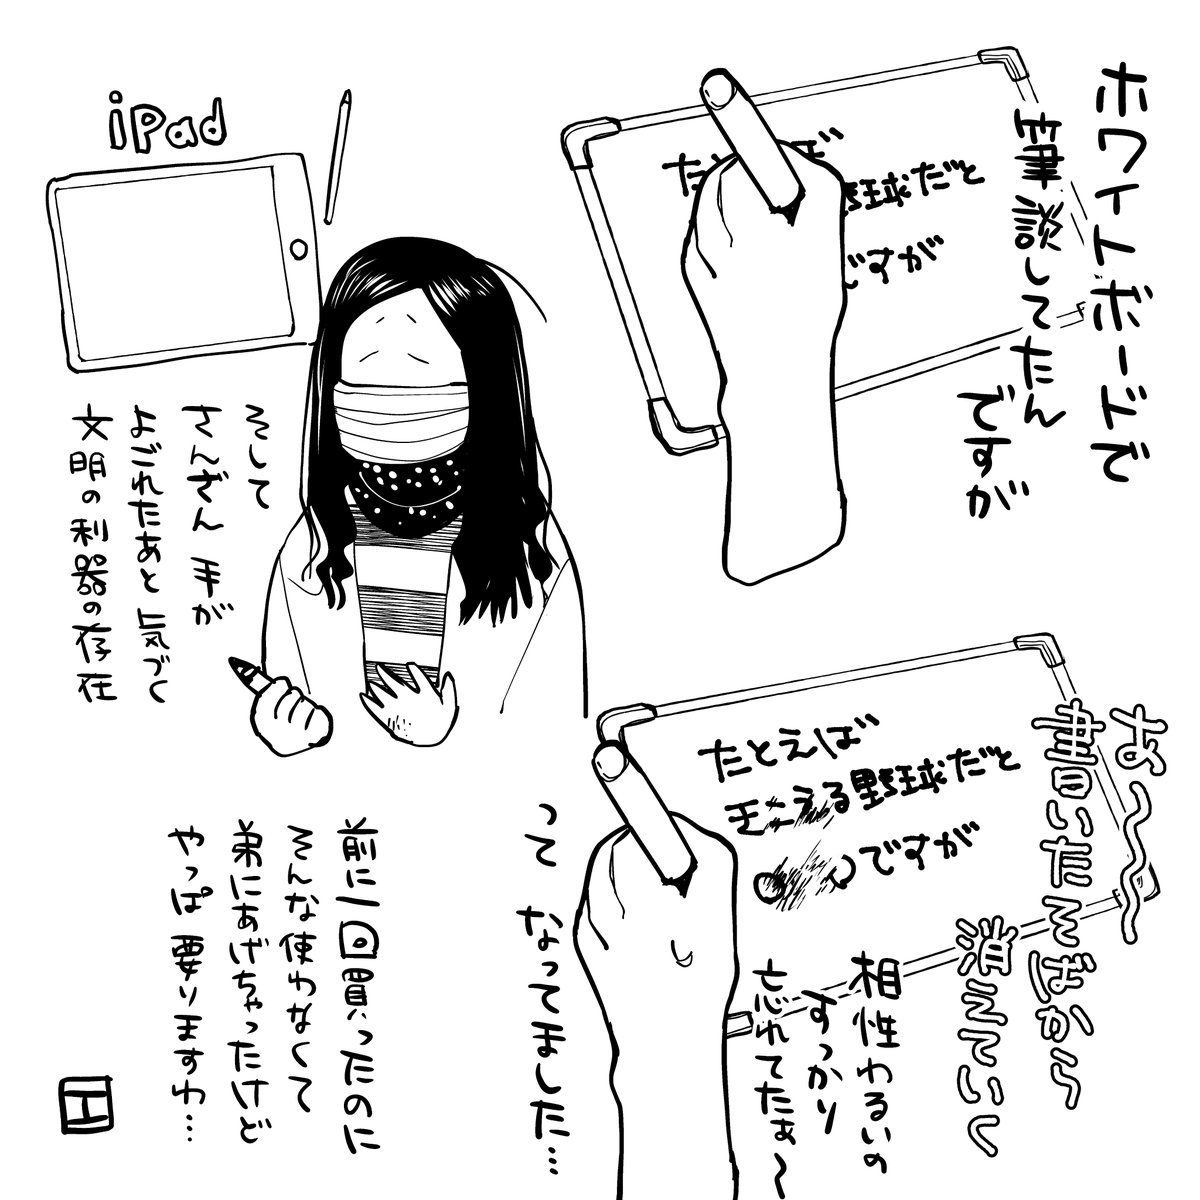 ホワイトボードで
筆談してたん
ですが
たとえば
野球だと
ですが
あ〜〜〜
書いたそばから
消えていく
たとえば
燃える野球だと
ですが
相性わるいの
すっかり
忘れてたぁ〜
iPad
そして
さんざん 手が
よごれたあと 気づく
文明の利器の存在
って なってました…
前に一回買ったのに
そんな使わなくて
弟にあげちゃったけど
やっぱ 要りますわ…